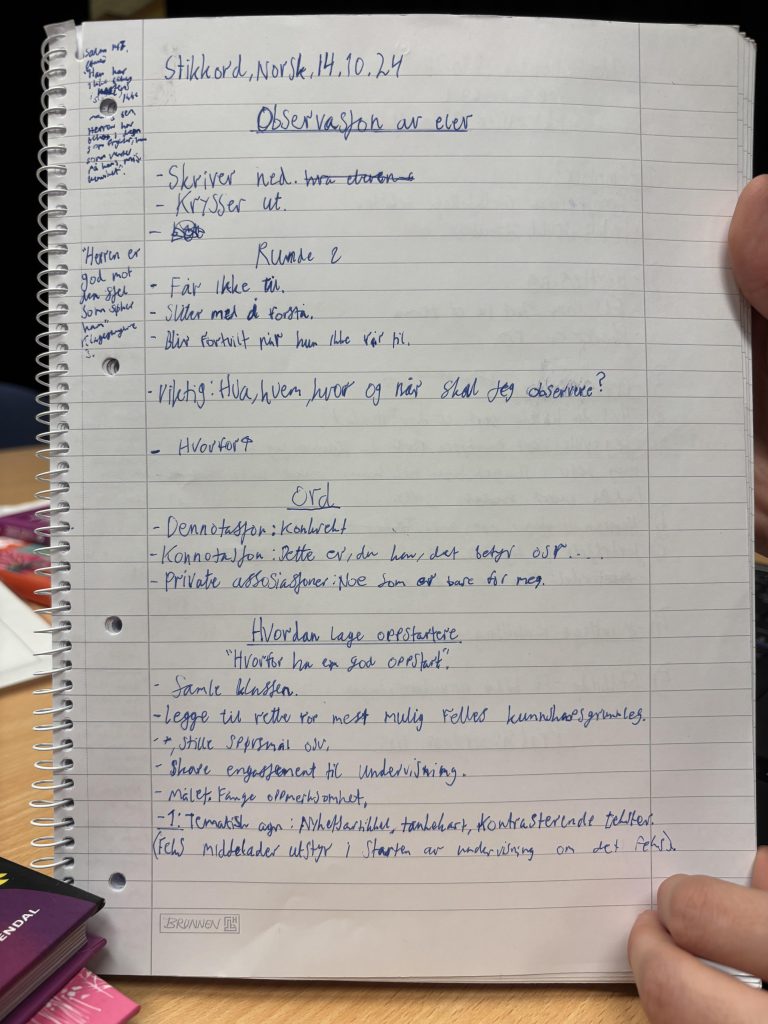 Stikkord, Norsk, 14.10.24
Observasjon av elev
- Skriver ned.
- Krysser ut.
-
Runde 2
- Får ikke til.
- Sliter med å forstå.
- Blir fortvilt når hun ikke får til.
- Viktig: Hva, hvem, hvor og når skal jeg observere?
- Hvorfor?
Ord
- Dennotasjon: Konkret
- Konnotasjon: Dette er, du kan, det betyr osv....
- Private assosiasjoner: Noe som er bare for meg.
Hvordan lage oppstartere.
"Hvorfor ha en god oppstart".
- Samle klassen.
- Legge til rette for mest mulig felles kunnskapsgrunnlag.
- +, stille spørsmål osv.
- Skape engasjement til undervisning.
- Målet: Fange oppmerksomhet.
- 1: Tematisk agn: Nyhetsartikkel, tankekart, kontrasterende tekster.
(Feks middelader utstyr i starten av undervisning om det feks).
"Herren er
god mot
den sjel
som søker
han"
3.
BRUNNEN
ENDAL